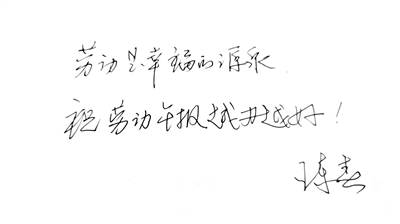 劳动是幸福的源泉
祝劳动午报越办越好！
陈春